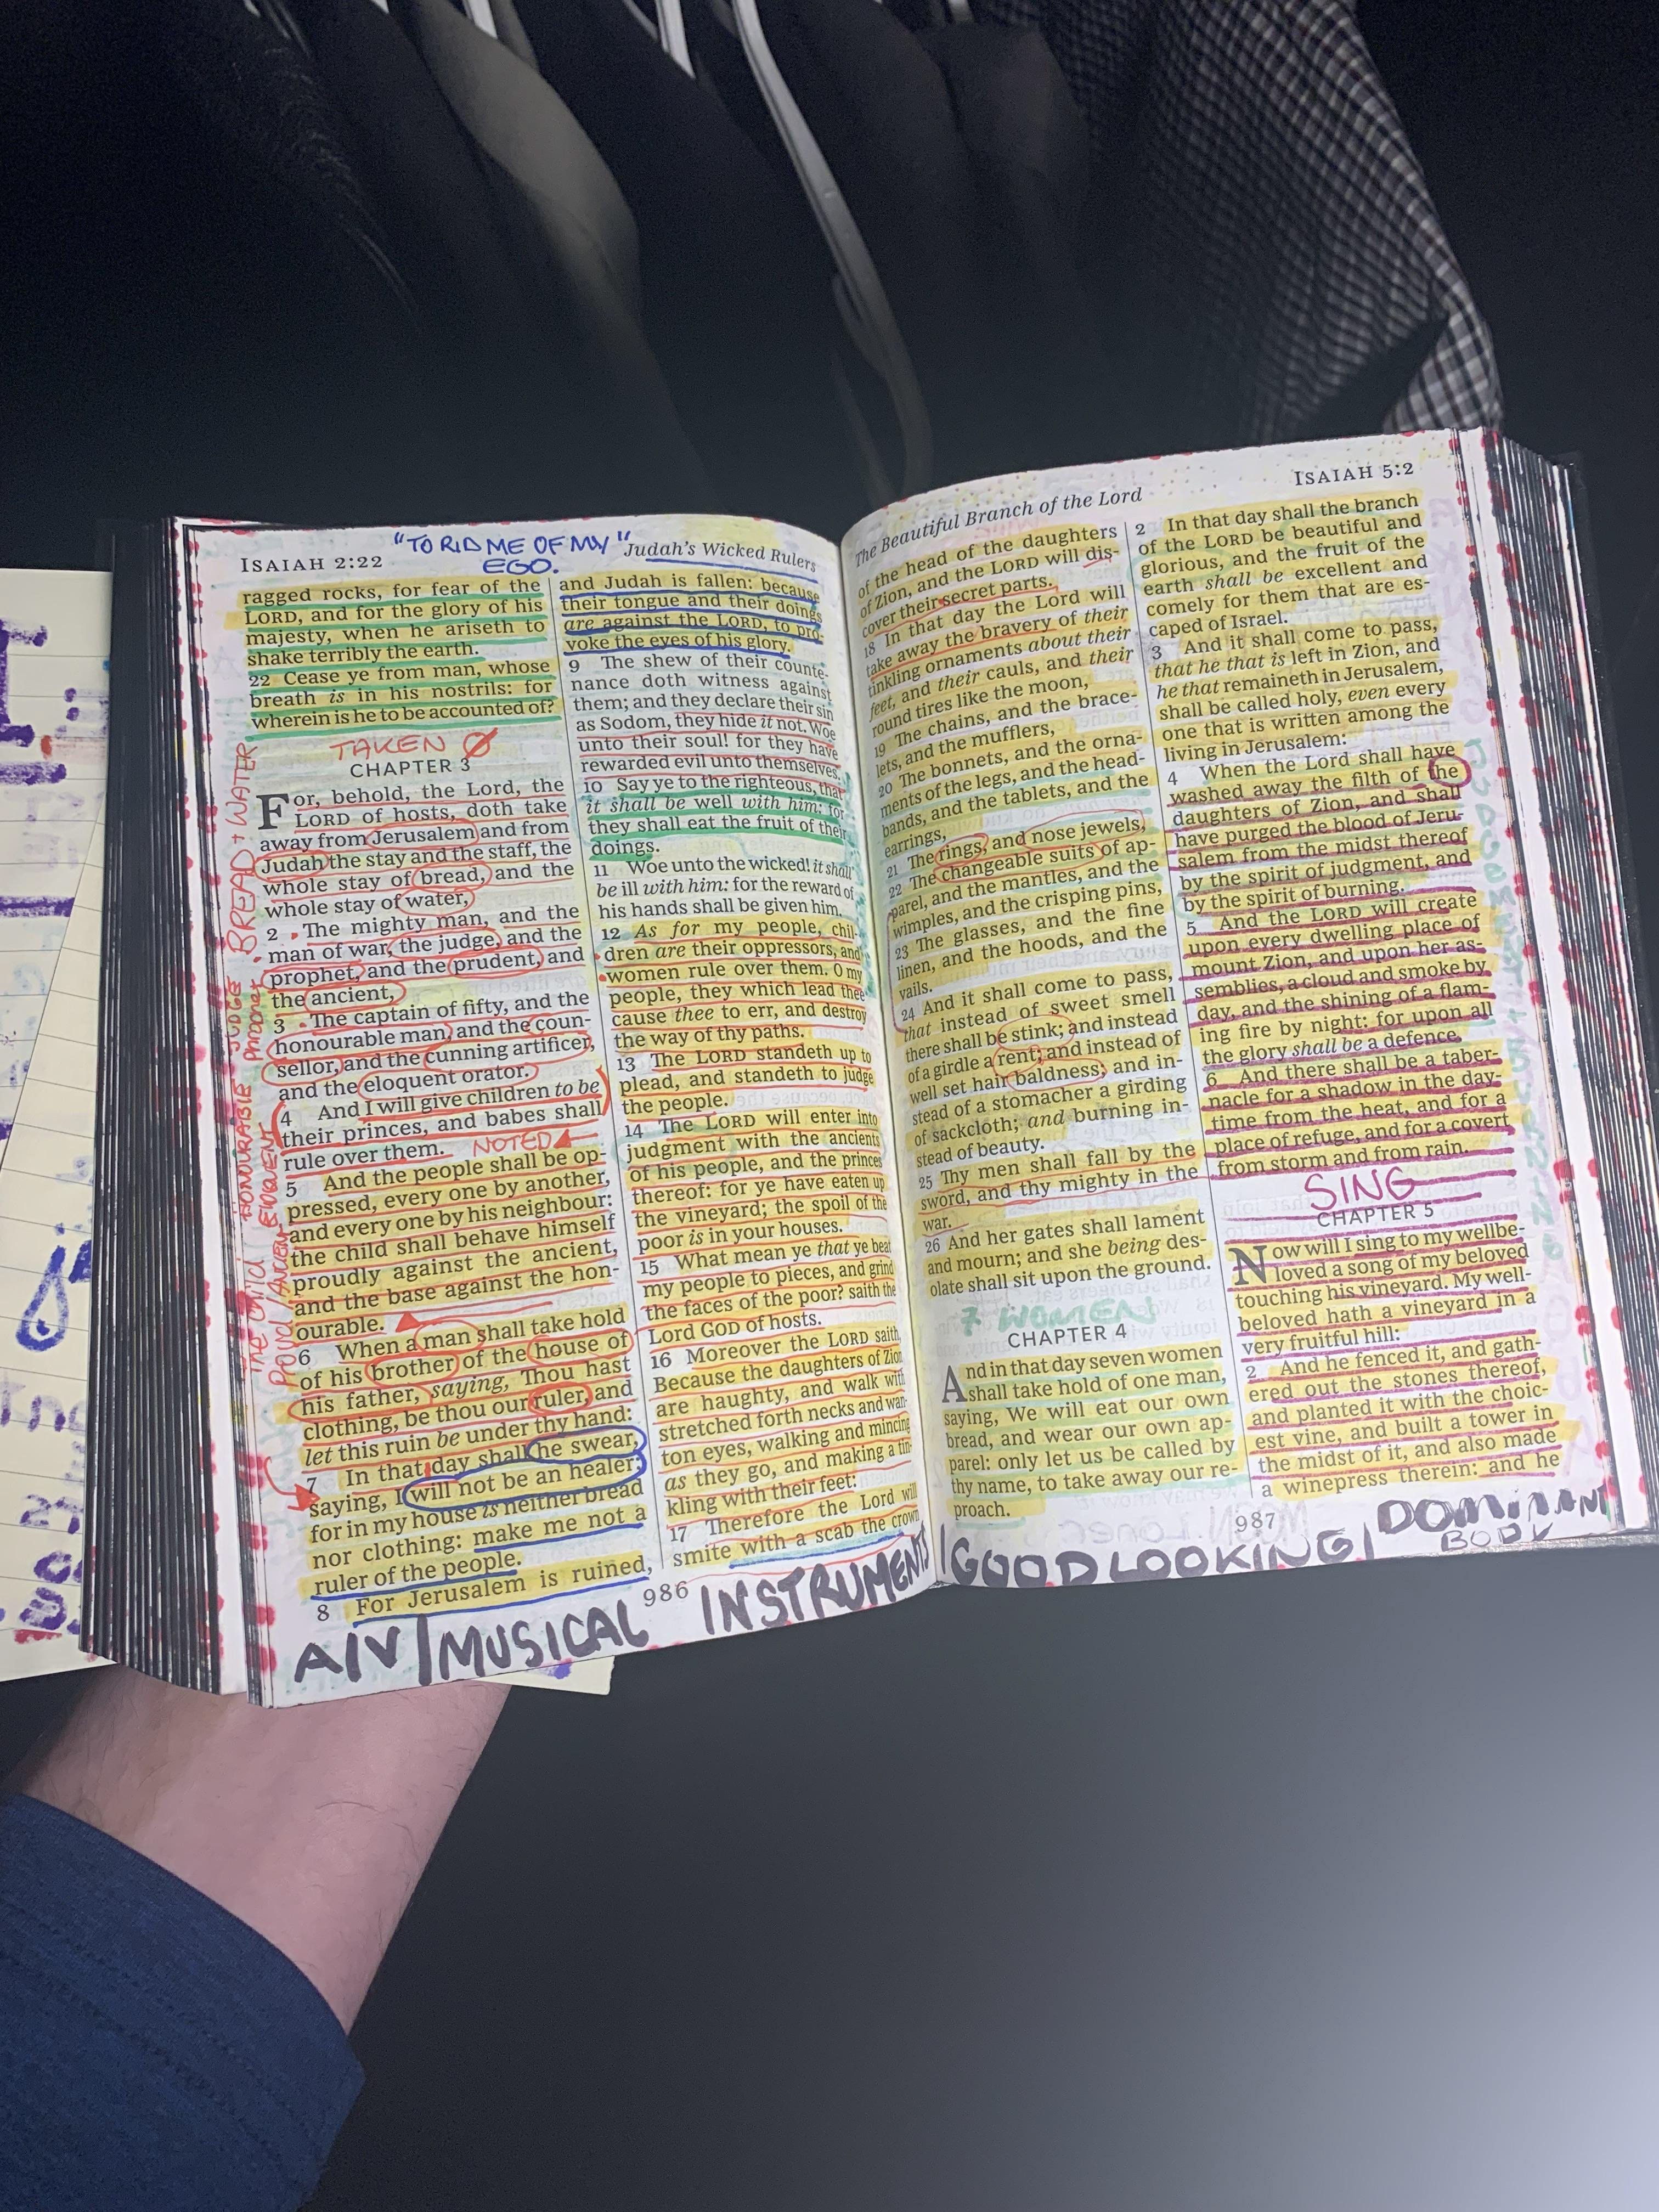 ISAIAH 2:22
"TO RID ME OF MY"
EGO.
Judah's Wicked Rulers
ragged rocks, for fear of the
LORD, and for the glory of his
majesty, when he ariseth to
shake terribly the earth.
22 Cease ye from man, whose
breath is in his nostrils: for
wherein is he to be accounted of?
TAKEN
CHAPTER 3
For, behold, the Lord, the
LORD of hosts, doth take
away from Jerusalem and from
Judah the stay and the staff, the
whole stay of bread, and the
whole stay of water,
2 The mighty man, and the
man of war, the judge, and the
prophet, and the prudent, and
the ancient,
3 The captain of fifty, and the
honourable man, and the coun-
sellor, and the cunning artificer,
and the eloquent orator.
4 And I will give children to be
their princes, and babes shall
rule over them. NOTED
5 And the people shall be op-
pressed, every one by another,
and every one by his neighbour:
the child shall behave himself
proudly against the ancient,
and the base against the hon-
ourable.
6 When a man shall take hold
of his brother of the house of
his father, saying, Thou hast
clothing, be thou our ruler, and
let this ruin be under thy hand:
7 In that day shall he swear,
saying, I will not be an healer;
for in my house is neither bread
nor clothing: make me not a
ruler of the people.
8 For Jerusalem is ruined,
BREAD + WATER
JUDGE
PROPHET
HONOURABLE
THE CHILD
and Judah is fallen: because
their tongue and their doings
are against the LORD, to pro-
voke the eyes of his glory.
9 The shew of their counte-
nance doth witness against
them; and they declare their sin
as Sodom, they hide it not. Woe
unto their soul! for they have
rewarded evil unto themselves.
10 Say ye to the righteous, that
it shall be well with him: for
they shall eat the fruit of their
doings.
11 Woe unto the wicked! it shall
be ill with him: for the reward of
his hands shall be given him.
12 As for my people, chil-
dren are their oppressors, and
women rule over them. O my
people, they which lead thee
cause thee to err, and destroy
the way of thy paths.
13 The LORD standeth up to
plead, and standeth to judge
the people.
14 The LORD will enter into
judgment with the ancients
of his people, and the princes
thereof: for ye have eaten up
the vineyard; the spoil of the
poor is in your houses.
15 What mean ye that ye beat
my people to pieces, and grind
the faces of the poor? saith the
Lord GOD of hosts.
16 Moreover the LORD saith,
Because the daughters of Zion
are haughty, and walk with
stretched forth necks and wan-
ton eyes, walking and mincing
as they go, and making a tin-
kling with their feet:
17 Therefore the Lord will
smite with a scab the crown
986
A/V | MUSICAL INSTRUMENTS
The Beautiful Branch of the Lord
ISAIAH 5:2
of the head of the daughters
of Zion, and the LORD will dis-
cover their secret parts.
18 In that day the Lord will
take away the bravery of their
tinkling ornaments about their
feet, and their cauls, and their
round tires like the moon,
19 The chains, and the brace-
lets, and the mufflers,
20 The bonnets, and the orna-
ments of the legs, and the head-
bands, and the tablets, and the
earrings,
21 The rings, and nose jewels,
22 The changeable suits of ap-
parel, and the mantles, and the
wimples, and the crisping pins,
23 The glasses, and the fine
linen, and the hoods, and the
vails.
24 And it shall come to pass,
that instead of sweet smell
there shall be stink; and instead
of a girdle a rent; and instead of
well set hair baldness; and in-
stead of a stomacher a girding
of sackcloth; and burning in-
stead of beauty.
25 Thy men shall fall by the
sword, and thy mighty in the
war.
26 And her gates shall lament
and mourn; and she being des-
olate shall sit upon the ground.
7 WOMEN
CHAPTER 4
And in that day seven women
shall take hold of one man,
saying, We will eat our own
bread, and wear our own ap-
parel: only let us be called by
thy name, to take away our re-
proach.
2 In that day shall the branch
of the LORD be beautiful and
glorious, and the fruit of the
earth shall be excellent and
comely for them that are es-
caped of Israel.
3 And it shall come to pass,
that he that is left in Zion, and
he that remaineth in Jerusalem,
shall be called holy, even every
one that is written among the
living in Jerusalem:
4 When the Lord shall have
washed away the filth of the
daughters of Zion, and shall
have purged the blood of Jeru-
salem from the midst thereof
by the spirit of judgment, and
by the spirit of burning.
5 And the LORD will create
upon every dwelling place of
mount Zion, and upon her as-
semblies, a cloud and smoke by
day, and the shining of a flam-
ing fire by night: for upon all
the glory shall be a defence.
6 And there shall be a taber-
nacle for a shadow in the day-
time from the heat, and for a
place of refuge, and for a covert
from storm and from rain.
SING
CHAPTER 5
Now will I sing to my wellbe-
loved a song of my beloved
touching his vineyard. My well-
beloved hath a vineyard in a
very fruitful hill:
2 And he fenced it, and gath-
ered out the stones thereof,
and planted it with the choic-
est vine, and built a tower in
the midst of it, and also made
a winepress therein: and he
987
| GOODLOOKING | DOMINANT
BODY